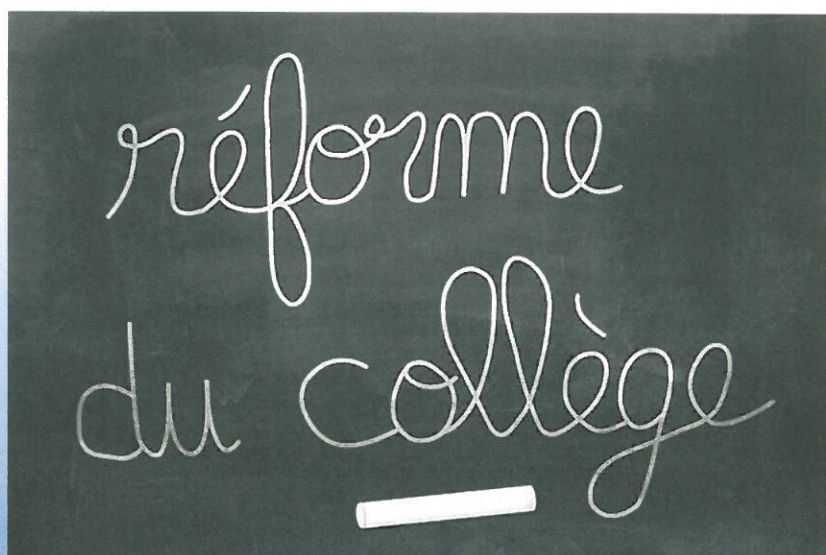 réforme
du collège